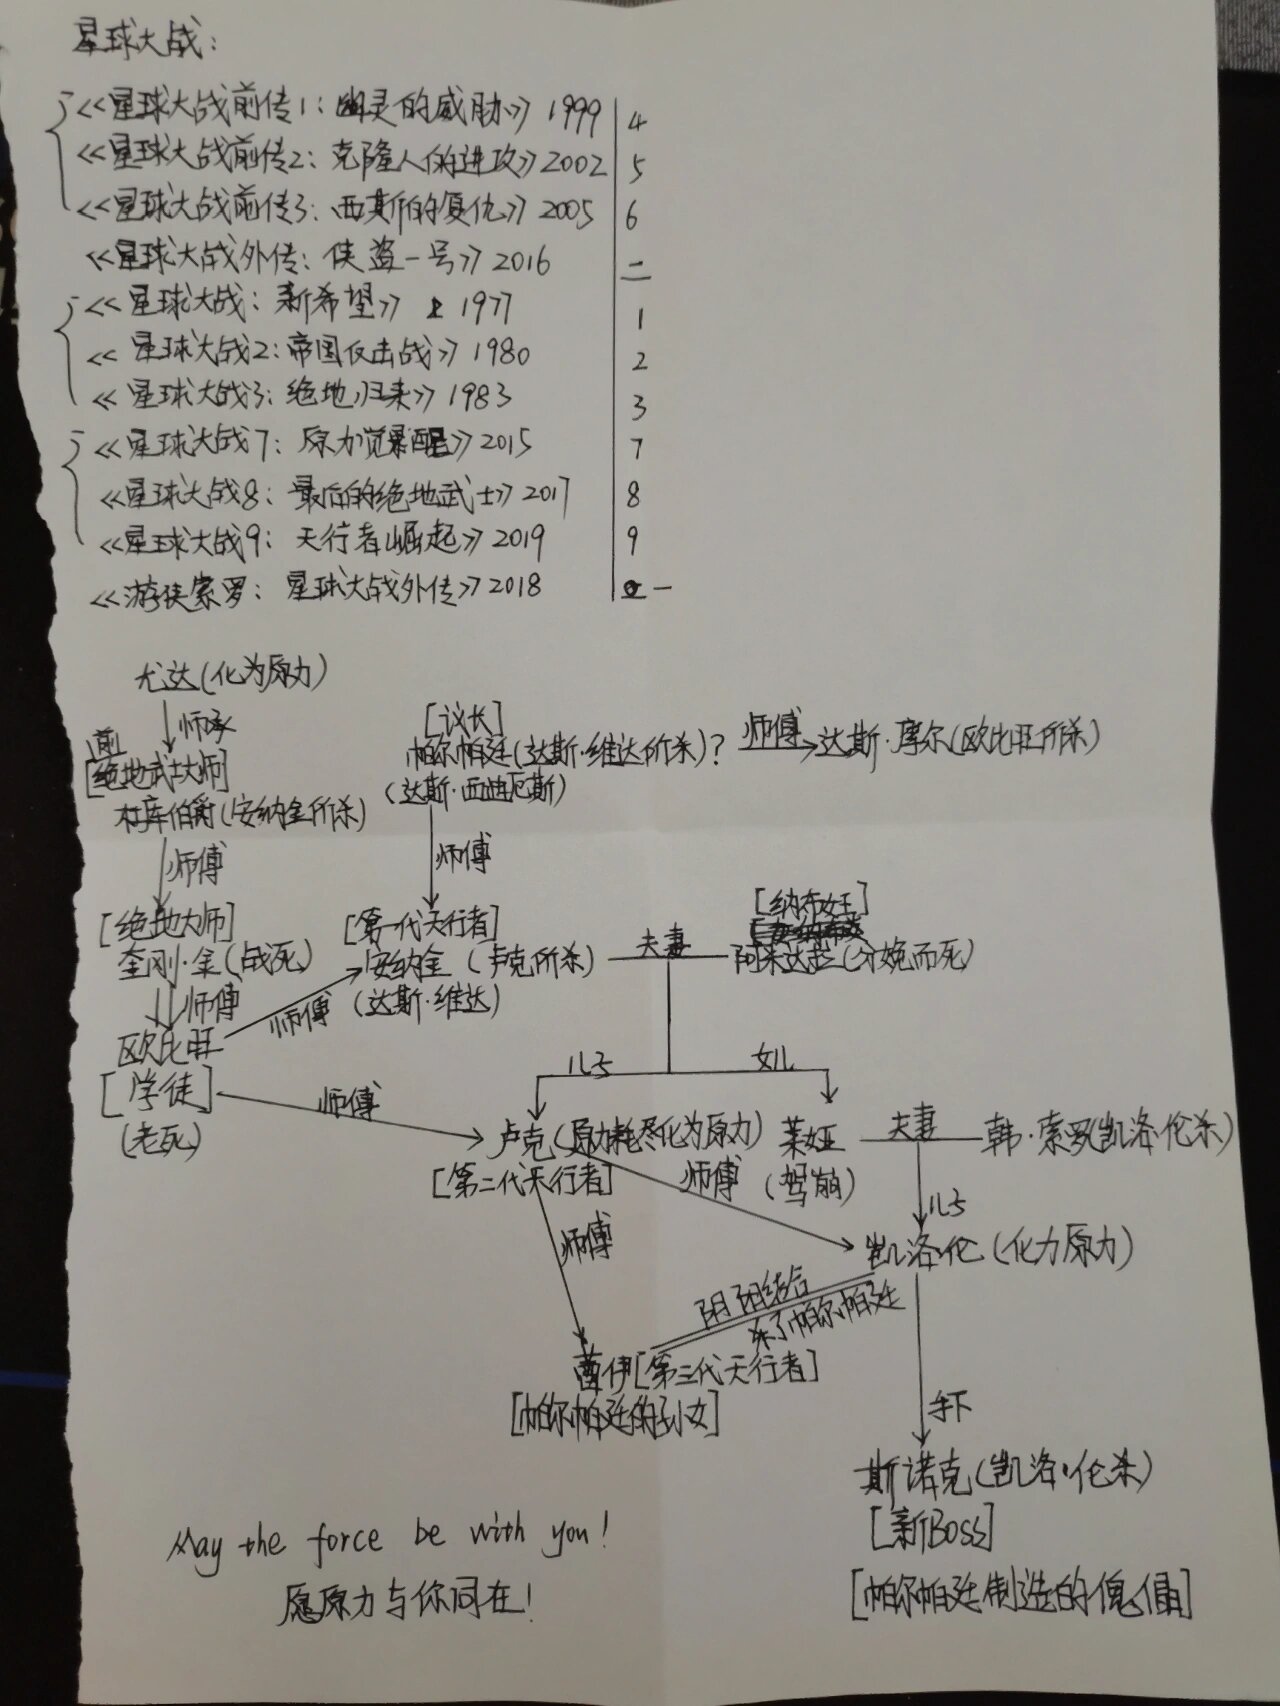 星球大战:
《星球大战前传1:幽灵的威胁》1999 4
《星球大战前传2:克隆人的进攻》2002 5
《星球大战前传3:西斯的复仇》2005 6
《星球大战外传:侠盗一号》2016 二
《星球大战:新希望》 1977 1
《星球大战2:帝国反击战》1980 2
《星球大战3:绝地归来》1983 3
《星球大战7:原力觉醒》2015 7
《星球大战8:最后的绝地武士》2017 8
《星球大战9:天行者崛起》2019 9
《游侠索罗:星球大战外传》2018 一
尤达(化为原力)
师承
前
[绝地武士大师]
杜库伯爵(安纳金所杀)
[议长]
帕尔帕廷(达斯·维达所杀)? 师傅 达斯·摩尔(欧比旺所杀)
(达斯·西迪厄斯)
师傅
师傅
[绝地大师]
奎刚·金(战死)
[第一代天行者]
安纳金(卢克所杀) 夫妻
(达斯·维达)
[纳布女王]
阿米达拉(分娩而死)
师傅
师傅
欧比旺
[学徒]
(老死)
师傅
儿子 女儿
卢克(原力耗尽化为原力)
[第二代天行者]
莱娅 夫妻 韩·索罗(凯洛·伦杀)
(驾崩)
师傅
师傅
儿子
凯洛·伦(化力原力)
阴阳结合
杀了帕尔帕廷
蕾伊[第三代天行者]
[帕尔帕廷的孙女]
手下
斯诺克(凯洛·伦杀)
[新BOSS]
[帕尔帕廷制造的傀儡]
May the force be with you!
愿原力与你同在!